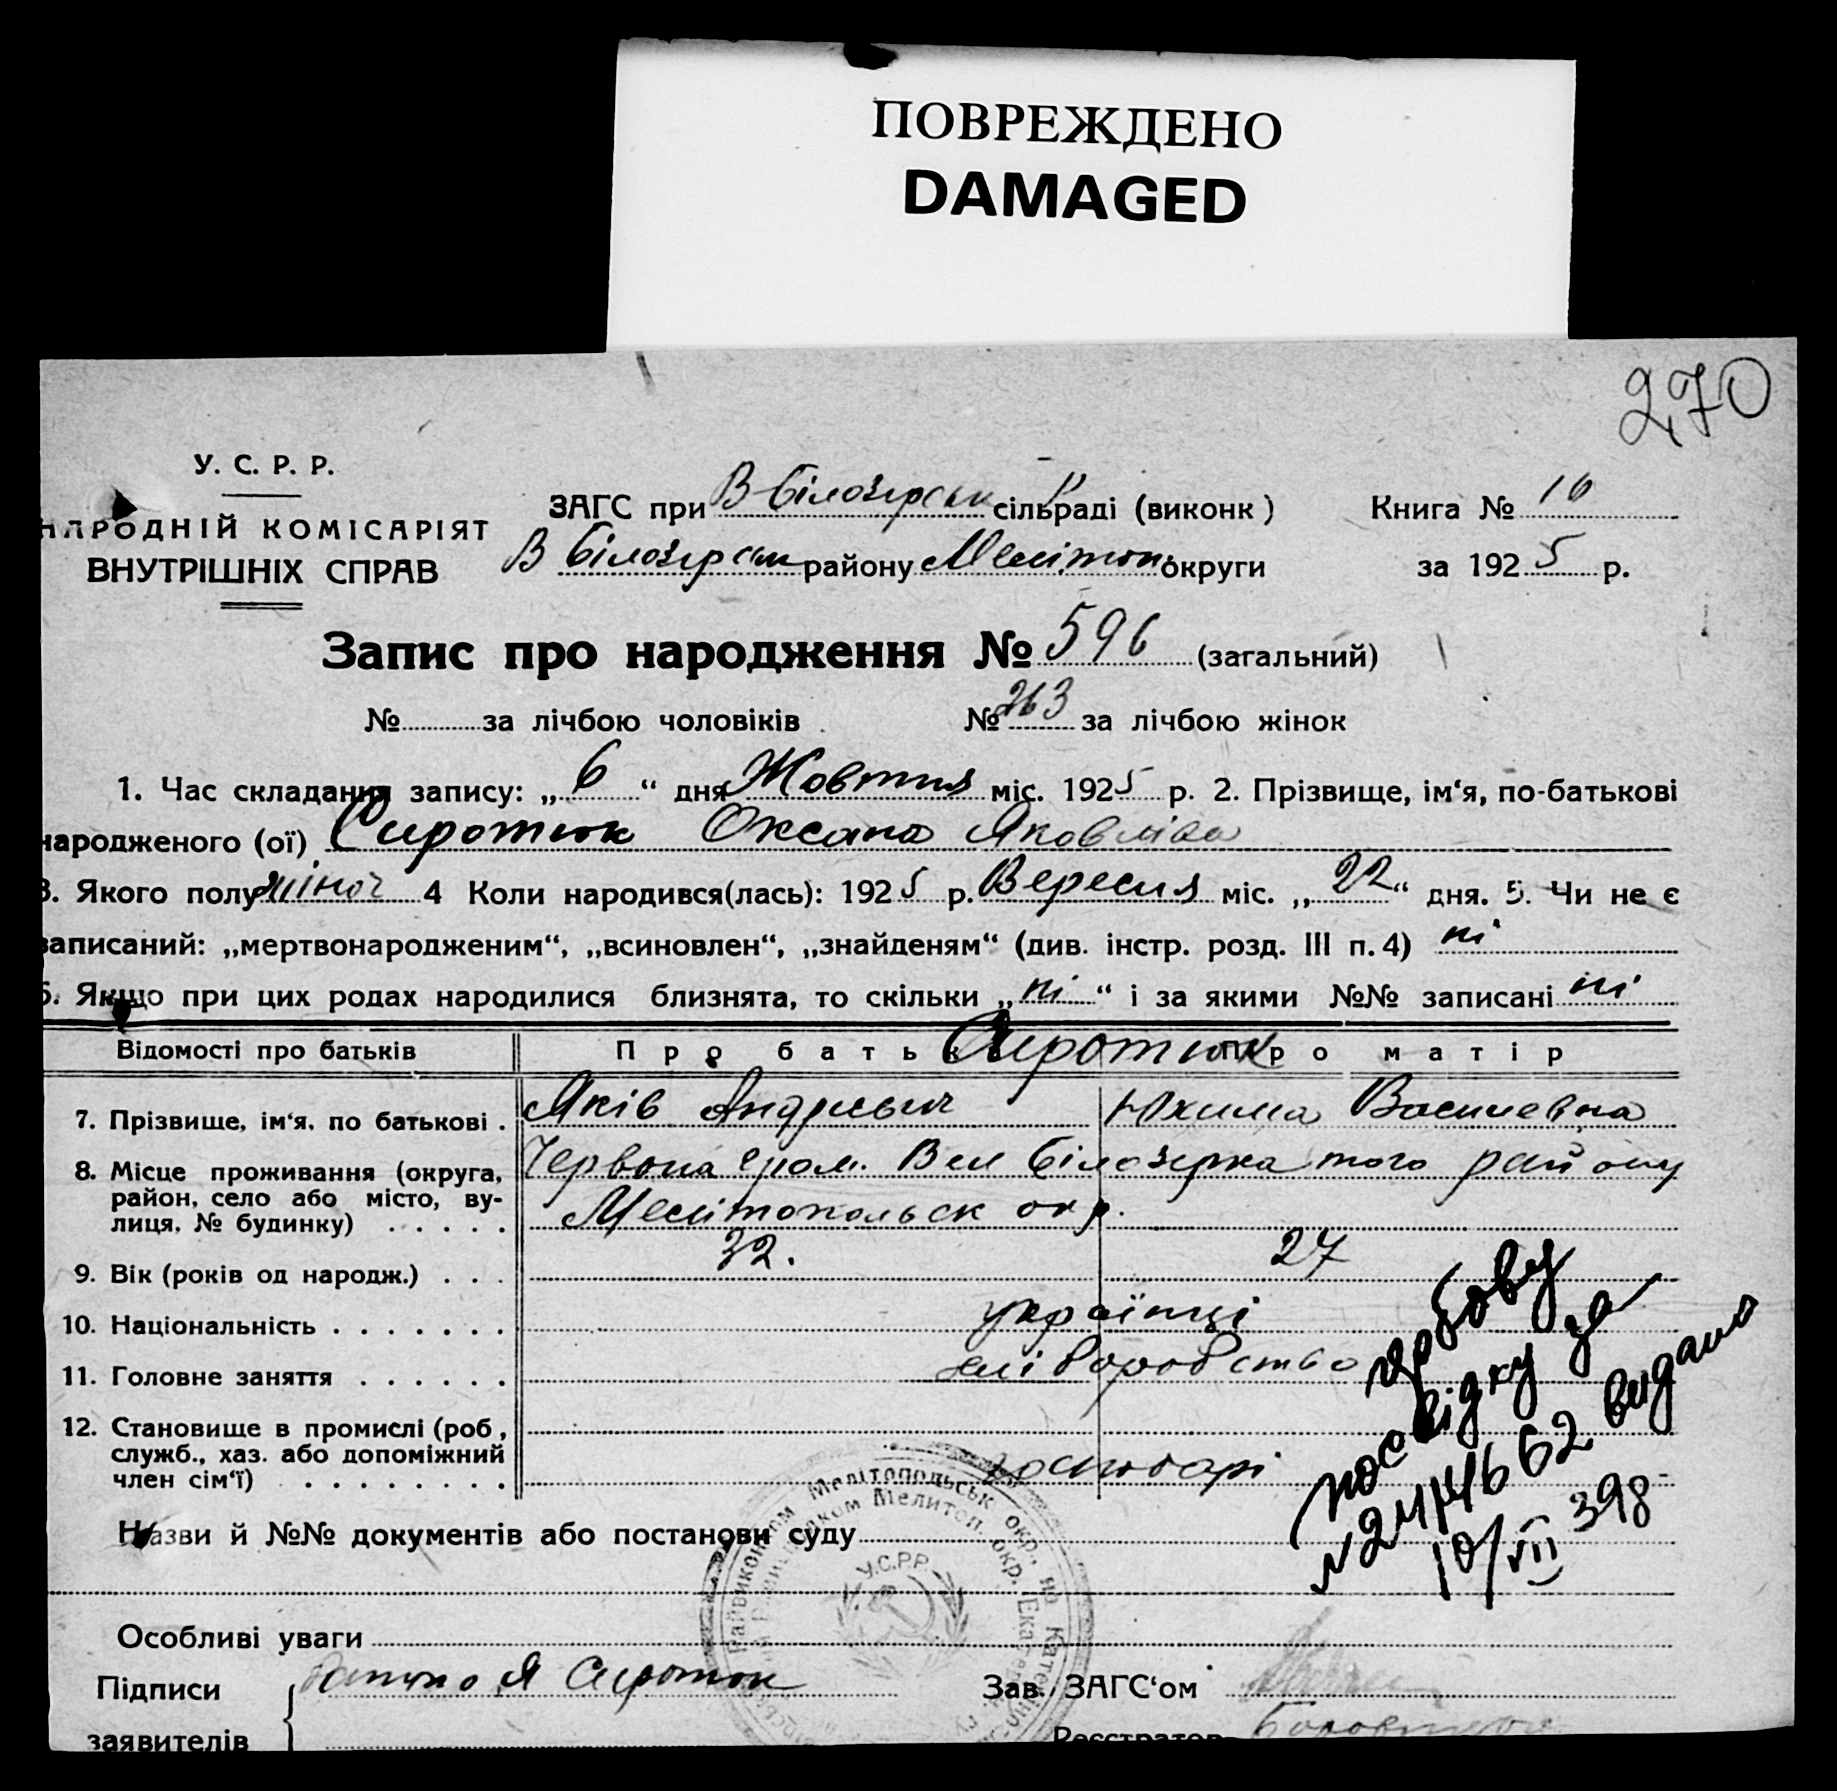 ПОВРЕЖДЕНО
DAMAGED
270
У. С. Р. Р.
НАРОДНІЙ КОМІСАРІЯТ
ВНУТРІШНІХ СПРАВ
ЗАГС при В-Білозірськ сільраді (виконк)
Книга № 16
В Білозірськ району Меліточ округи
за 1925 р.
Запис про народження № 596 (загальний)
№ за лічбою чоловіків № 263 за лічбою жінок
1. Час складання запису: „6“ дня Жовтня міс. 1925 р. 2. Прізвище, ім‘я, по-батькові
народженого (ої) Сиротюк Оксана Яковлівна
3. Якого полу жіноч 4 Коли народився(лась): 1925 р. Вересня міс. „22“ дня. 5. Чи не є
записаний: „мертвонародженим“, „всиновлен“, „знайденям“ (див. інстр. розд. III п. 4) ні
6. Якщо при цих родах народилися близнята, то скільки „ні“ і за якими №№ записані ні
Відомості про батьків Про батька Сиротюк Про матір
7. Прізвище, ім‘я, по батькові . Яків Андрієвич Юхима Василевна
8. Місце проживання (округа, Червона гром. Вел Білозірка того району
район, село або місто, ву- Мелітопольськ окр.
лиця, № будинку) . . . . .
9. Вік (років од народж.) . . . 32. 27
10. Національність . . . . . . . українці
11. Головне заняття . . . . . . хліборобство
12. Становище в промислі (роб,
служб., хаз. або допоміжний
член сім‘ї) . . . . . . . . господарі
посвідку за
видано
10/VII 398
Назви й №№ документів або постанови суду
Райвиконком Мелітопольськ окр., на Катерино
Мелитоп. окр. Екатер
У.С.Р.Р.
Особливі уваги
Підписи батько Я Сиротюк
Зав. ЗАГС‘ом
заявителів
Реєстратор